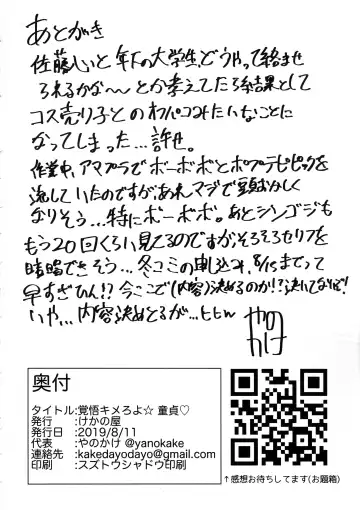 あとがき
佐藤しいと年下の大学生、どうやって絡ませ
られるかな〜〜とか考えてたら結果として
コス売り子とのオフパコみたいなことに
なってしまった…許せ。
作業中、アマプラでボーボボとポプテピピックを
流していたのですがあれマジで頭おかしく
なりそう…特にボーボボ。あとシンゴジも
もう20回くらい見てるのですがそろそろセリフを
暗唱できそう…冬コミの申込み、8/15までって
早すぎひん!?今ここで(内容)決めるのか!?決いてなけど!
いや…内容決めとるが…ヒヒん
やの
かけ
奥付
タイトル:覚悟キメろよ☆ 童貞♡
発行　:けかの屋
発行日　:2019/8/11
代表　:やのかけ @yanokake
連絡先　:kakedayodayo@gmail.com
印刷　:スズトウシャドウ印刷
↑感想お待ちしてます(お題箱)